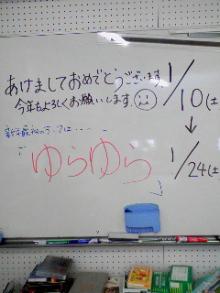 あけましておめでとうございます
今年もよろしくお願いします
1/10(土
↓
1/24(土
新年最初のテーマは・・・・
「ゆらゆら」